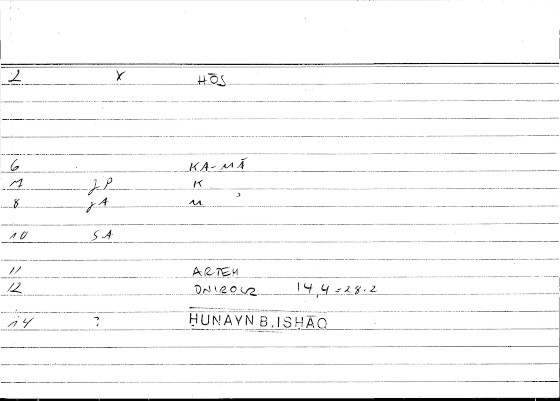 2 X HŌS
6 KA-MĀ
7 JP K
8 JA M
10 SA
11 ARTEM
12 14,4=28.2
14 ? ḤUNAYN B. ISḤĀQ